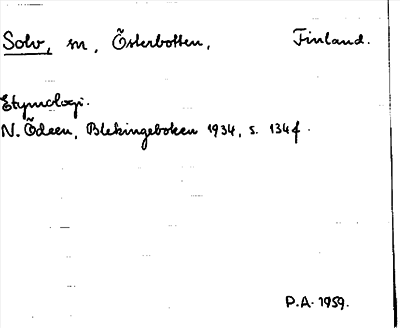 Solv, m, Österbotten, Finland.
Etymologi.
N. Ödeen, Blekingeboken 1934, s. 134 f.
P.A. 1959.